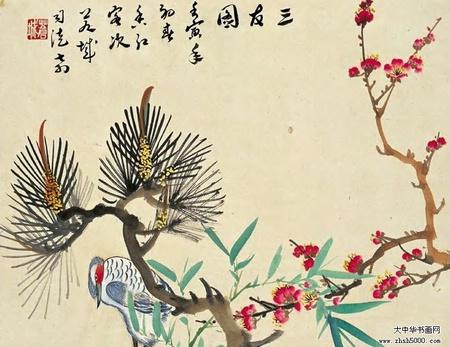 三友圖
壬寅年
初春
香江
客次
蒼城
司徒奇
大中华书画网
www.zhsh5000.com